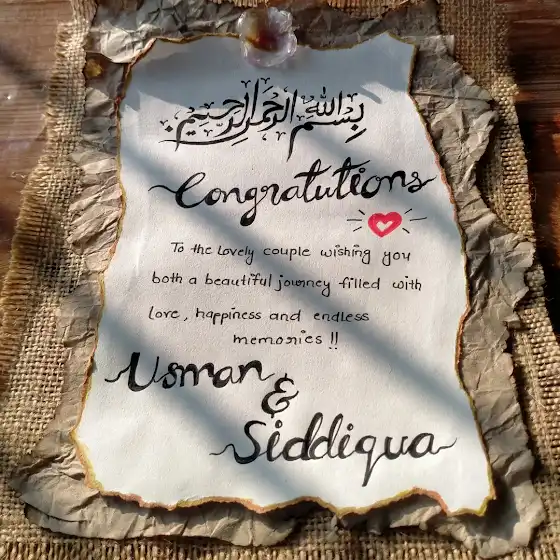 بسم الله الرحمن الرحيم
Congratutions
To the lovely couple wishing you
both a beautiful journey filled with
love, happiness and endless
memories !!
Usman
&
Siddiqua